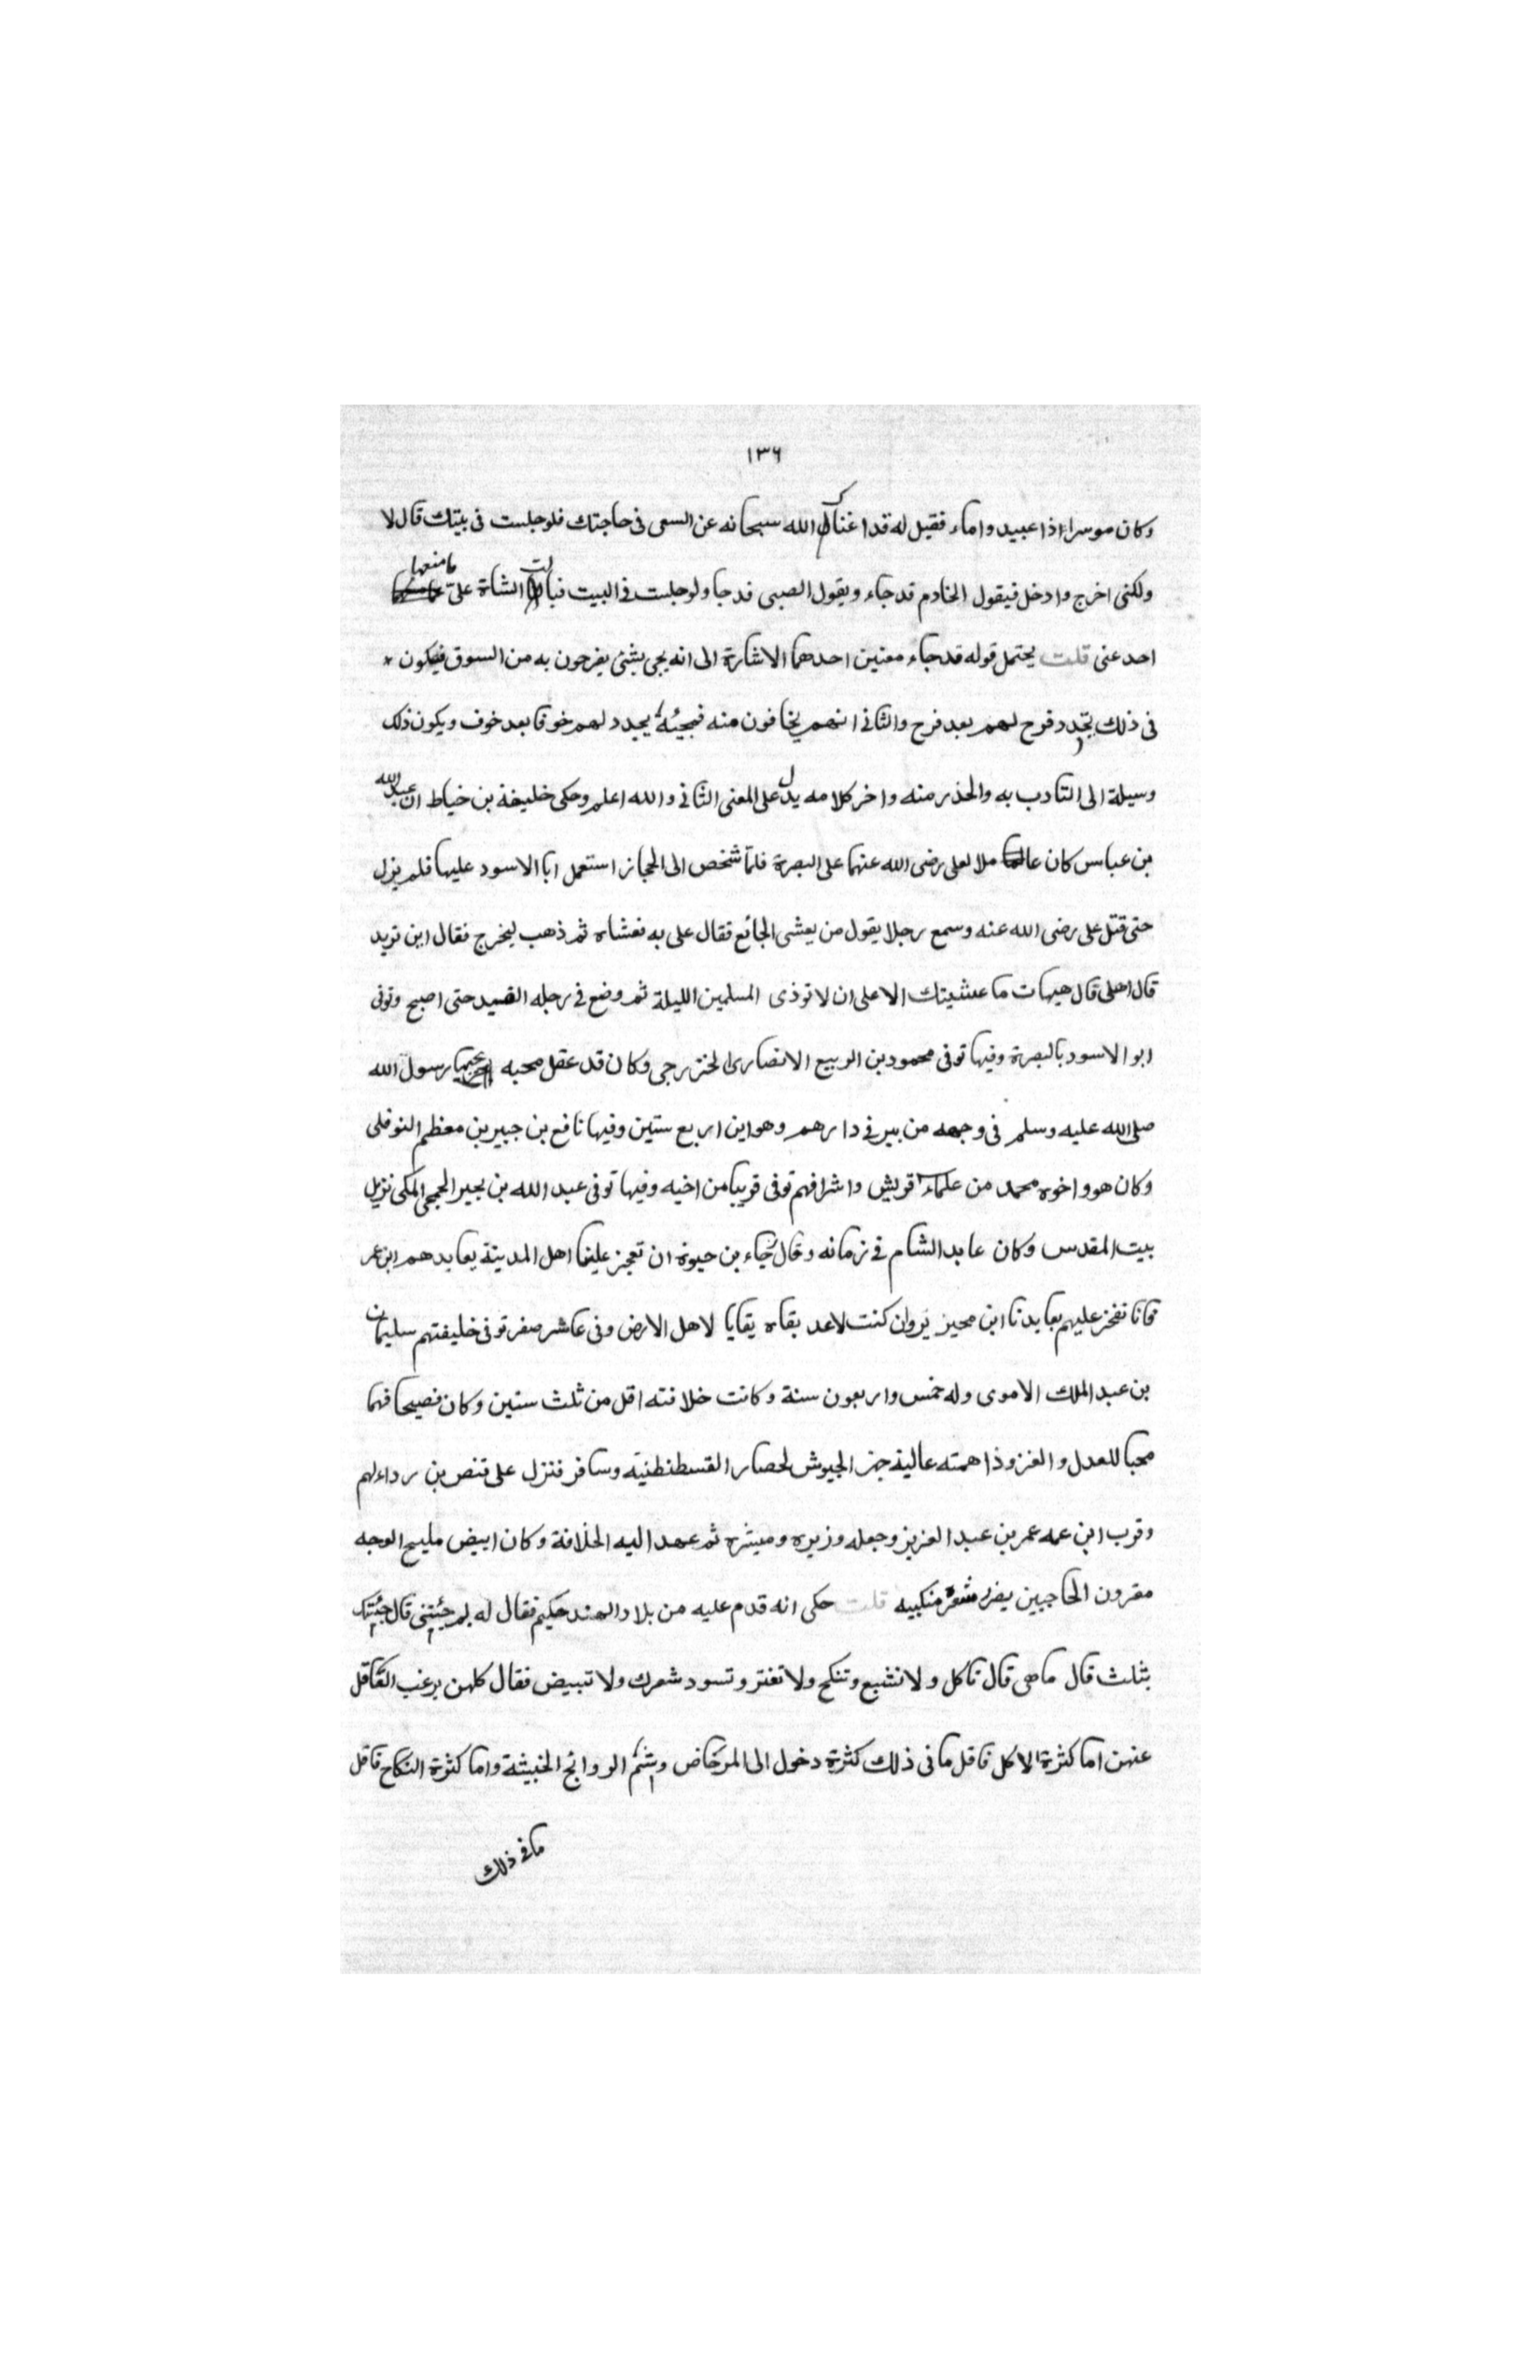 ١٣٦
وكان موسرا اذا عبيد واماء فقيل له قد اغناك الله سبحانه عن السعى فى حاجتك فلو جلست فى بيتك قال لا
ولكنى اخرج وادخل فيقول الخادم قد جاء ويقول الصبى قد جا ولو جلست فى البيت فبالت الشاة علىّ ما منعها
احد عنى قلت يحتمل قوله قد جاء معنين احدهما الاشارة الى انه يجى بشئ يفرحون به من السوق فيكون
فى ذلك تجدد فرح لهم بعد فرح والثانى انهم يخافون منه فمجيئه يجدد لهم خوفا بعد خوف ويكون ذلك
وسيلة الى التادب به والحذر منه واخر كلامه يدل على المعنى الثانى والله اعلم وحكى خليفة بن خياط ان عبد الله
بن عباس كان عاملا لعلى رضى الله عنهما على البصرة فلمّا شخص الى الحجاز استعمل ابا الاسود عليها فلم يزل
حتى قتل على رضى الله عنه وسمع رجلا يقول من يعشى الجائع فقال على به فعشاه ثم ذهب ليخرج فقال اين تريد
قال اهلى قال هيهات ما عشيتك الا على ان لا توذى المسلمين الليلة ثم وضع فى رجله القيد حتى اصبح وتوفى
ابو الاسود بالبصرة وفيها توفى محمود بن الربيع الانصارى الخزرجى وكان قد عقل محبه رسول الله
صلى الله عليه وسلم فى وجهه من بير فى دارهم وهو ابن اربع سنين وفيها نافع بن جبير بن معظم النوفلى
وكان هو واخوه محمد من علماء قريش واشرافهم توفى قريبا من اخيه وفيها توفى عبد الله بن بجير الجمحى المكى نزيل
بيت المقدس وكان عابد الشام فى زمانه وقال رجاء بن حيوة ان تعجز علينا اهل المدينة بعابدهم ابن عمر
فانا نفخر عليهم بعابدنا ابن محيز يز وان كنت لاعد بقاه يقايا لاهل الارض وفى عاشر صفر توفى خليفتهم سليمان
بن عبد الملك الاموى وله خمس واربعون سنة وكانت خلافته اقل من ثلث سنين وكان فصيحا فهما
محبا للعدل والغزو ذا همته عالية جهز الجيوش لحصار القسطنطنية وسافر فنزل على قنصبن رداء لهم
وقرب ابن عمه عمر بن عبد العزيز وجعله وزيره ومشيره ثم عهد اليه الخلافة وكان ابيض مليح الوجه
مقرون الحاجبين يضرب شعره منكبيه قلت حكى انه قدم عليه من بلاد الهند حكيم فقال له لم جئتنى قال جئتك
بثلث قال ما هى قال تاكل ولا تشبع وتنكح ولا تفتر وتسود شعرك ولا تبيض فقال كلهن يرغب العاقل
عنهن اما كثرة الاكل فاقل ما فى ذلك كثرة دخول الى المرحاض وشم الروائح الخبيثة واما كثرة النكاح فاقل
ما فى ذلك